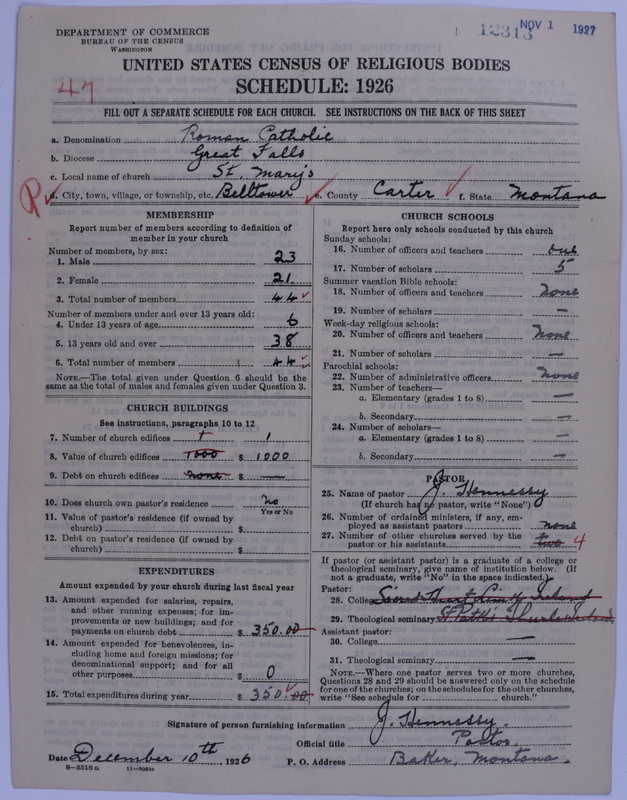 DEPARTMENT OF COMMERCE
BUREAU OF THE CENSUS
WASHINGTON
12313 NOV 1 1927
UNITED STATES CENSUS OF RELIGIOUS BODIES
SCHEDULE: 1926
47
FILL OUT A SEPARATE SCHEDULE FOR EACH CHURCH. SEE INSTRUCTIONS ON THE BACK OF THIS SHEET
a. Denomination Roman Catholic
b. Diocese Great Falls
c. Local name of church St. Mary's
d. City, town, village, or township, etc. Belltower e. County Carter f. State Montana
MEMBERSHIP
Report number of members according to definition of member in your church
Number of members, by sex:
1. Male 23
2. Female 21
3. Total number of members 44
Number of members under and over 13 years old:
4. Under 13 years of age 6
5. 13 years old and over 38
6. Total number of members 44
NOTE.—The total given under Question 6 should be the
same as the total of males and females given under Question 3.
CHURCH BUILDINGS
See instructions, paragraphs 10 to 12
7. Number of church edifices 1 1
8. Value of church edifices 1000 $ 1000
9. Debt on church edifices none $ —
10. Does church own pastor's residence No
Yes or No
11. Value of pastor's residence (if owned by
church) $
12. Debt on pastor's residence (if owned by
church) $
EXPENDITURES
Amount expended by your church during last fiscal year
13. Amount expended for salaries, repairs,
and other running expenses; for im-
provements or new buildings; and for
payments on church debt $ 350.00
14. Amount expended for benevolences, in-
cluding home and foreign missions; for
denominational support; and for all
other purposes $ 0
15. Total expenditures during year $ 350.00
CHURCH SCHOOLS
Report here only schools conducted by this church
Sunday schools:
16. Number of officers and teachers one
17. Number of scholars 5
Summer vacation Bible schools:
18. Number of officers and teachers none
19. Number of scholars —
Week-day religious schools:
20. Number of officers and teachers none
21. Number of scholars —
Parochial schools:
22. Number of administrative officers none
23. Number of teachers—
a. Elementary (grades 1 to 8) —
b. Secondary —
24. Number of scholars—
a. Elementary (grades 1 to 8) —
b. Secondary —
PASTOR
25. Name of pastor J. Hennessy
(If church has no pastor, write "None")
26. Number of ordained ministers, if any, em-
ployed as assistant pastors none
27. Number of other churches served by the
pastor or his assistants two 4
If pastor (or assistant pastor) is a graduate of a college or
theological seminary, give name of institution below. (If
not a graduate, write "No" in the space indicated.)
Pastor:
28. College Sacred Heart
29. Theological seminary St Patk's
Assistant pastor:
30. College —
31. Theological seminary —
NOTE.—Where one pastor serves two or more churches,
Questions 28 and 29 should be answered only on the schedule
for one of the churches; on the schedules for the other churches,
write "See schedule for church."
Signature of person furnishing information J. Hennessy.
Official title Pastor
Date December 10th, 1926 P. O. Address Baker, Montana.
8—5518 a